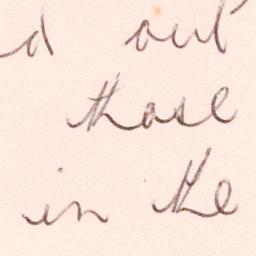 d out
those
in the